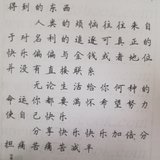 得到的东西
人类的烦恼往往来自
于对名利的追逐可真正的
快乐偏偏与金钱或者地位
并没有直接联系
无论生活给你何种的
命运你都要满怀希望努力
使自己快乐
分享快乐快乐加倍分
担痛苦痛苦减半